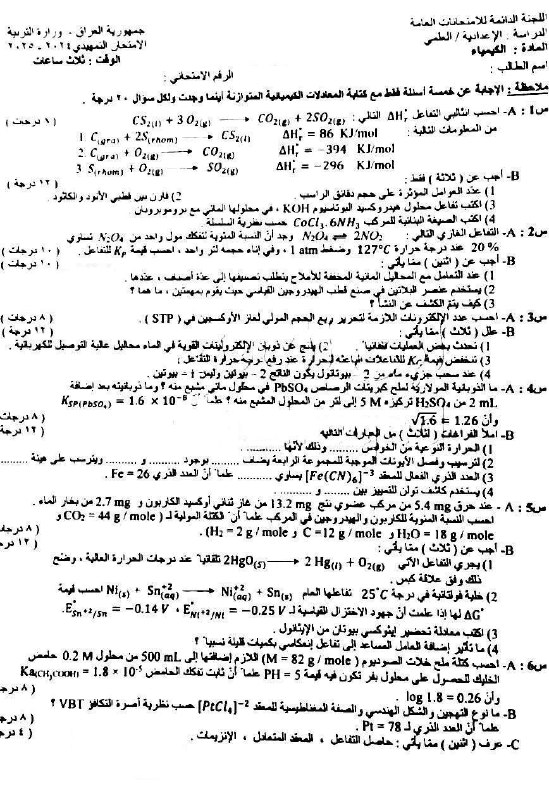 اللجنة الدائمة للامتحانات العامة
جمهورية العراق - وزارة التربية
الدراسة : الإعدادية / العلمي
الامتحان التمهيدي ٢٠٢٤ - ٢٠٢٥
المادة : الكيمياء
الوقت : ثلاث ساعات
اسم الطالب :
الرقم الامتحاني :
ملاحظة : الإجابة عن خمسة أسئلة فقط مع كتابة المعادلات الكيميائية المتوازنة أينما وجدت ولكل سؤال ٢٠ درجة .
س1 : A- احسب انثالبي التفاعل ΔH°r التالي : CS2(l) + 3 O2(g) → CO2(g) + 2SO2(g)
من المعلومات التالية : 1. C(gra) + 2S(rhom) → CS2(l) ΔH°f = 86 KJ/mol (٨ درجات)
2. C(gra) + O2(g) → CO2(g) ΔH°f = −394 KJ/mol
3. S(rhom) + O2(g) → SO2(g) ΔH°f = −296 KJ/mol
B- أجب عن ( ثلاثة ) فقط : ( ١٢ درجة )
1) عدد العوامل المؤثرة على حجم دقائق الراسب . 2) قارن بين قطبي الأنود والكاثود .
3) اكتب تفاعل محلول هيدروكسيد البوتاسيوم KOH ، في محلولها المائي مع بروموبروبان
4) اكتب الصيغة البنائية للمركب CoCl3.6NH3 حسب نظرية السلسلة
س2 : A- التفاعل الغازي التالي : N2O4 ⇌ 2NO2 وجد أنّ النسبة المئوية لتفكك مول واحد من N2O4 تساوي
20 % عند درجة حرارة 127°C وضغط 1 atm ، وفي إناء حجمه لتر واحد ، احسب قيمة Kp للتفاعل . ( ١٠ درجات )
B- أجب عن ( اثنين ) ممّا يأتي : ( ١٠ درجات )
1) عند التعامل مع المحاليل المائية المخففة للأملاح يتطلب تصنيفها إلى عدة أصناف ، عددها .
2) يستخدم عنصر البلاتين في صنع قطب الهيدروجين القياسي حيث يقوم بمهمتين ، ما هما ؟
3) كيف يتم الكشف عن النشأ ؟
س3 : A- احسب عدد الإلكترونات اللازمة لتحرير ربع الحجم المولي لغاز الأوكسجين في ( STP ) . ( ٨ درجات )
B- علل ( ثلاث ) ممّا يأتي : ( ١٢ درجة )
1) تحدث بعض العمليات تلقائياً . 2) ينتج عن ذوبان الإلكتروليتات القوية في الماء محاليل عالية التوصيل للكهربائية .
3) تنخفض قيمة Kc للتفاعلات الباعثة للحرارة عند رفع درجة حرارة التفاعل
4) عند سحب جزيء ماء من 2 - بيوتانول يكون الناتج 2 - بيوتين وليس 1 - بيوتين .
س4 : A- ما الذوبانية المولارية لملح كبريتات الرصاص PbSO4 في محلول مائي مشبع منه ؟ وما ذوبانيته بعد إضافة
2 mL من H2SO4 تركيزه 5 M إلى لتر من المحلول المشبع منه ؟ علماً أنّ KSP(PbSO4) = 1.6 × 10⁻⁸
وأنّ √1.6 = 1.26 ( ٨ درجات )
B- املأ الفراغات ( لثلاث ) من العبارات التالية ( ١٢ درجة )
1) الحرارة النوعية من الخواص .......... وذلك لأنها ..........
2) لترسيب وفصل الأيونات الموجبة للمجموعة الرابعة يضاف .......... بوجود .......... و .......... ويترسب على هيئة ..........
3) العدد الذري الفعال للمعقد [Fe(CN)6]⁻³ يساوي .......... علماً أنّ العدد الذري Fe = 26 .
4) يستخدم كاشف تولن للتمييز بين .......... و ..........
س5 : A- عند حرق 5.4 mg من مركب عضوي نتج 13.2 mg من غاز ثنائي أوكسيد الكاربون و 2.7 mg من بخار الماء .
احسب النسبة المئوية للكاربون والهيدروجين في المركب علماً أنّ الكتلة المولية لـ ( CO2 = 44 g / mole و
H2O = 18 g / mole و C =12 g / mole و H2 = 2 g / mole ) . ( ٨ درجات )
B- أجب عن ( ثلاث ) ممّا يأتي :
1) يجري التفاعل الآتي 2HgO(S) → 2 Hg(l) + O2(g) تلقائياً عند درجات الحرارة العالية ، وضح
ذلك وفق علاقة كبس .
2) خلية فولتائية في درجة 25°C تفاعلها العام Ni(s) + Sn⁺²(aq) → Ni⁺²(aq) + Sn(s) احسب قيمة
ΔG° لها إذا علمت أنّ جهود الاختزال القياسية لـ E°Ni⁺²/Ni = −0.25 V ، E°Sn⁺²/Sn = −0.14 V .
3) اكتب معادلة تحضير إيثوكسي بيوتان من الإيثانول .
4) ما تأثير إضافة العامل المساعد إلى تفاعل انعكاسي بكميات قليلة نسبياً ؟
س6 : A- احسب كتلة ملح خلات الصوديوم ( M = 82 g / mole ) اللازم إضافتها إلى 500 mL من محلول 0.2 M حامض
الخليك للحصول على محلول بفر تكون فيه قيمة PH = 5 علماً أنّ ثابت تفكك الحامض Ka(CH3COOH) = 1.8 × 10⁻⁵
وأنّ log 1.8 = 0.26 . ( ٨ درجة )
B- ما نوع التهجين والشكل الهندسي والصفة المغناطيسية للمعقد [PtCl4]⁻² حسب نظرية آصرة التكافؤ VBT ؟
علماً أنّ العدد الذري لـ Pt = 78 . ( ٨ درجة )
C- عرف ( اثنين ) ممّا يأتي : حاصل التفاعل ، المعقد المتعادل ، الإنزيمات . ( ٤ درجة )